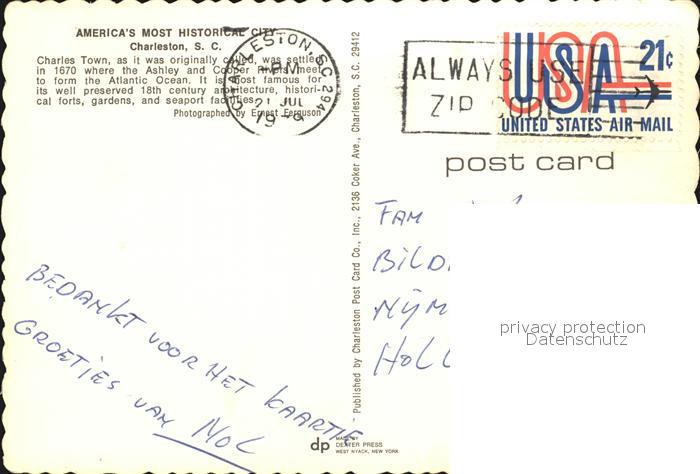 AMERICA'S MOST HISTORICAL CITY
Charleston, S. C.
Charles Town, as it was originally called, was settled
in 1670 where the Ashley and Cooper Rivers meet
to form the Atlantic Ocean. It is most famous for
its well preserved 18th century architecture, histori-
cal forts, gardens, and seaport facilities.
Photographed by Ernest Ferguson
CHARLESTON, SC 294
PM
21 JUL
ALWAYS USE
ZIP CODE
USA
21¢
UNITED STATES AIR MAIL
post card
Published by Charleston Post Card Co., Inc., 2136 Coker Ave., Charleston, S.C. 29412
BEDANKT VOOR HET KAARTJE
GROETJES VAN NOL
FAM
BILD
NYM
HOLL
privacy protection
Datenschutz
dp
MADE BY
DEXTER PRESS
WEST NYACK, NEW YORK